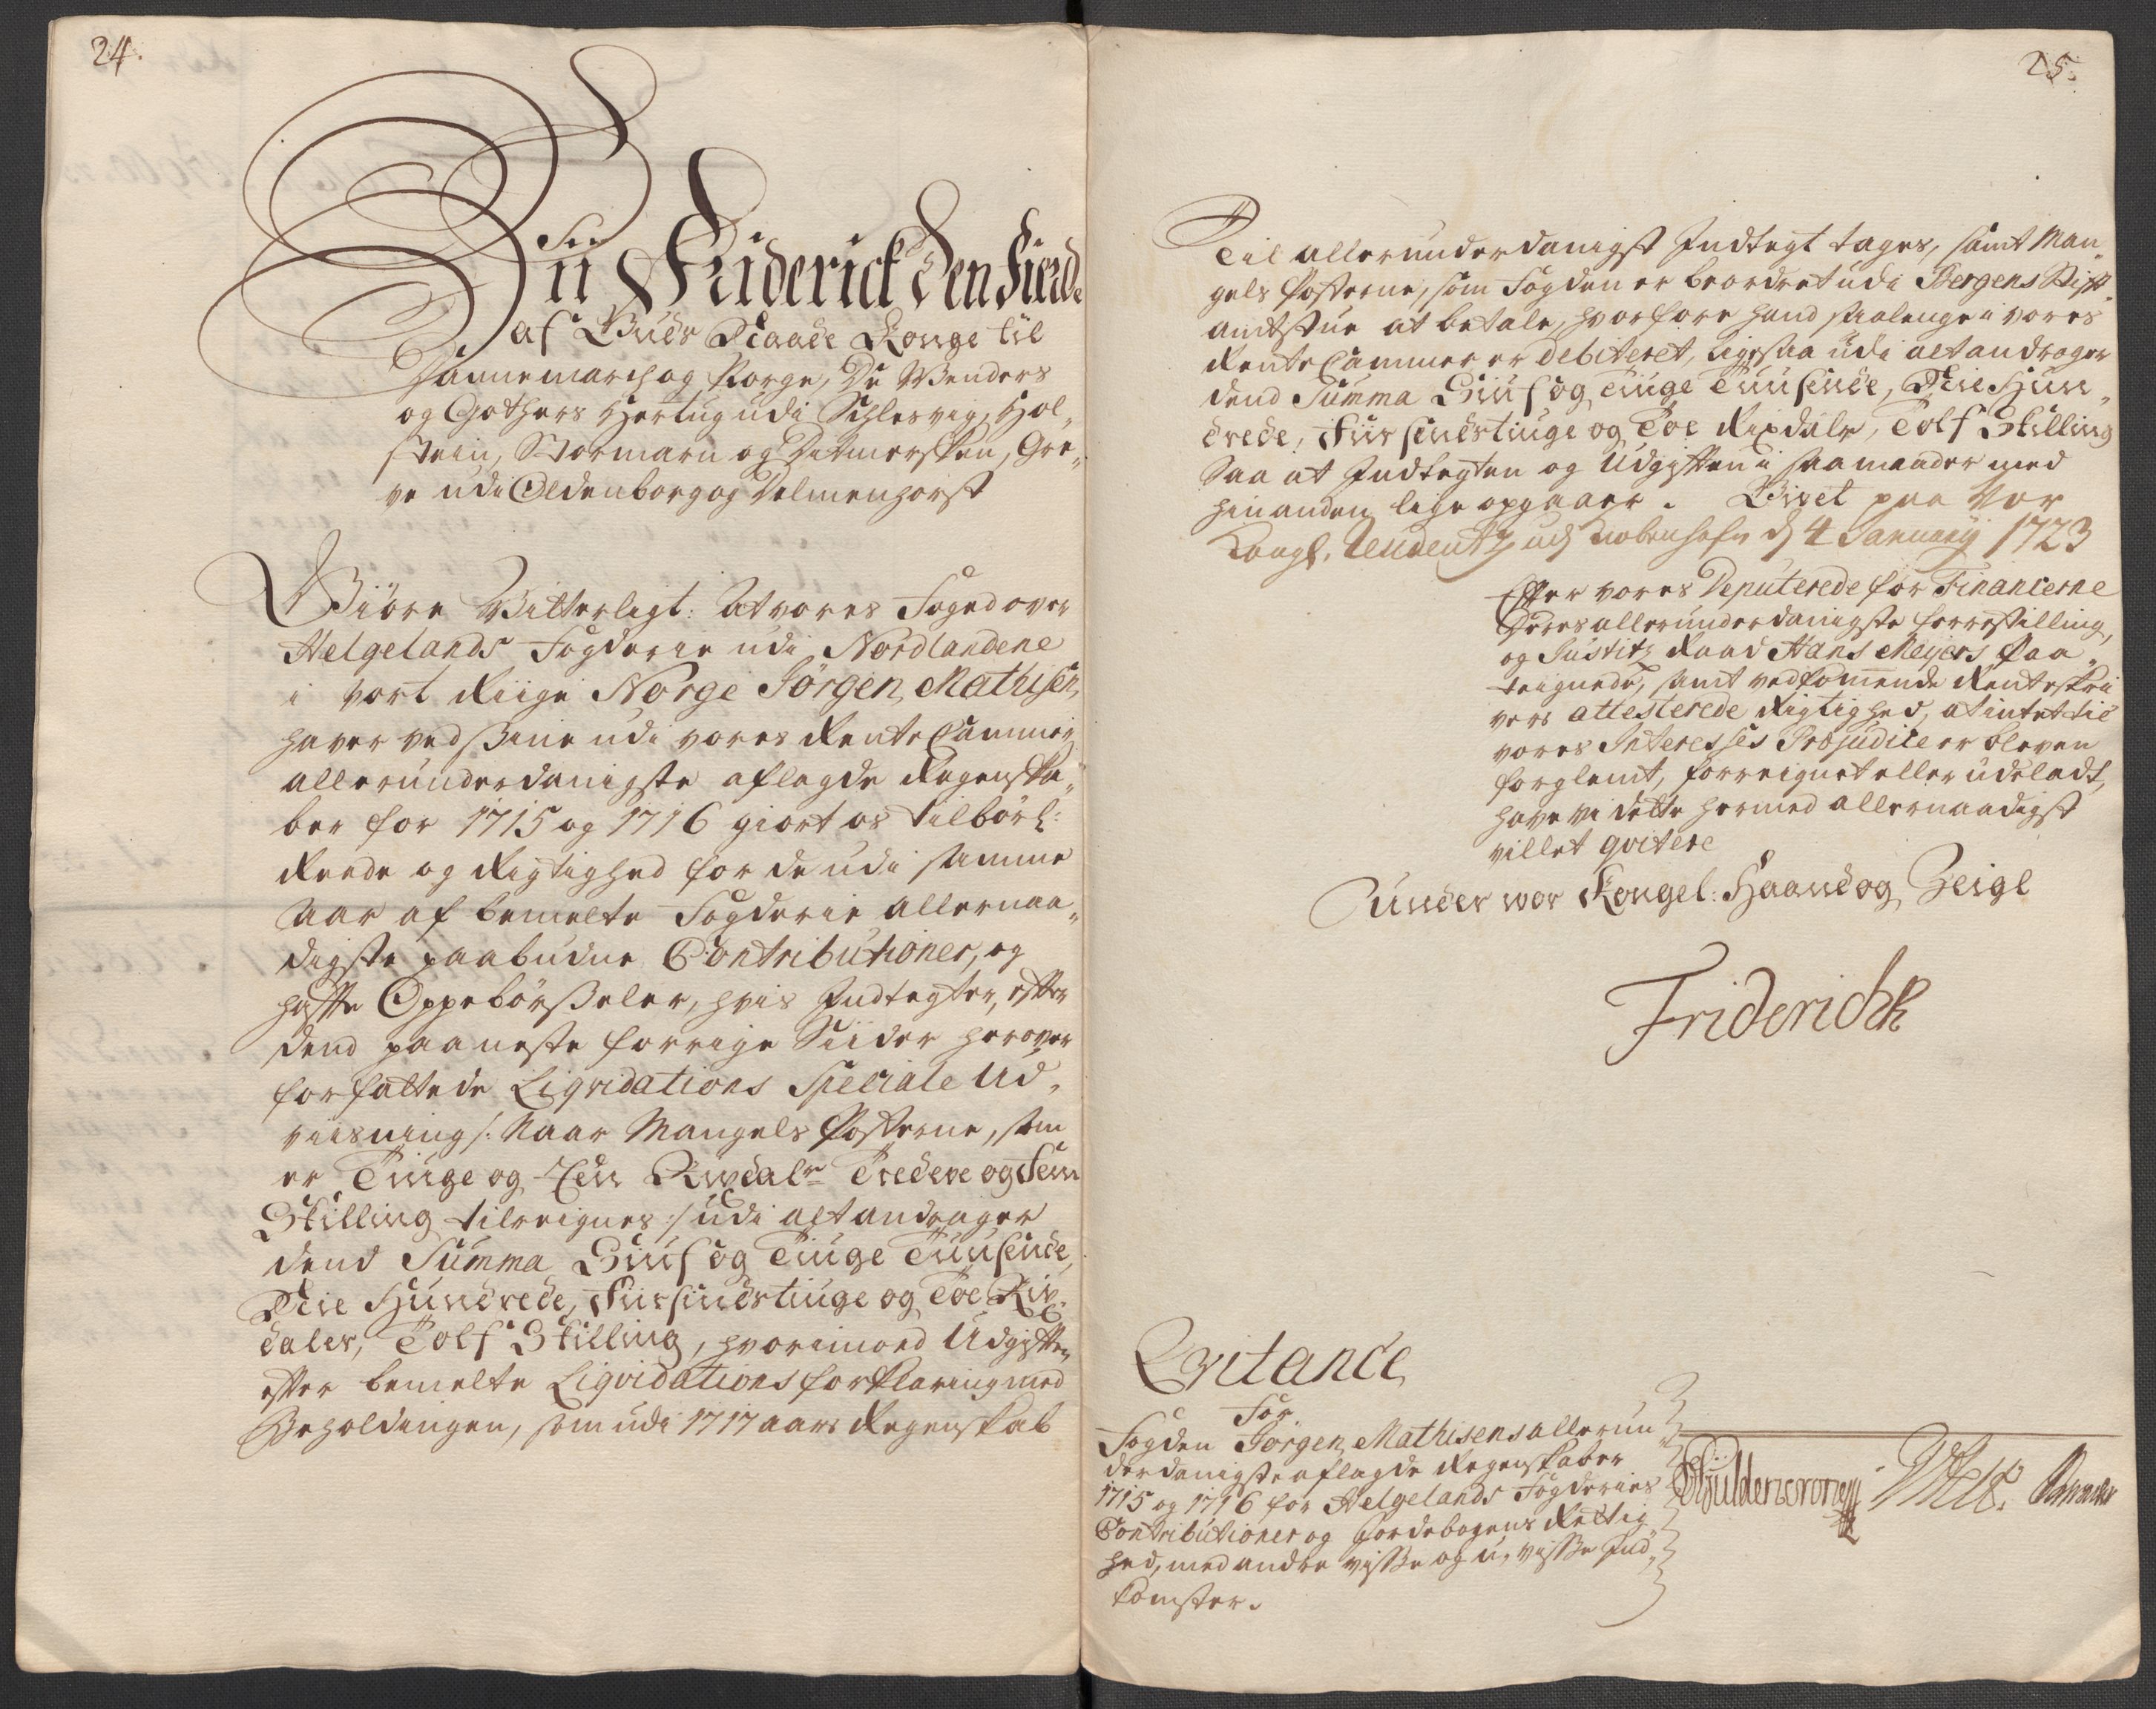 24.
Vii Friderick den Fierde
af Guds Naade Konge til
Dannemarch og Norge, De Wenders
og Gothers Hertug udi Schlesvig, Hol„
stein, Stormarn og Ditmersken, Gre„
ve udi Oldenborg og Delmenhorst
Giöre Vitterligt: At vores Foged over
Helgelands Fogderie udi Nordlandene
i vort Riige Norge Jörgen Mathisen,
haver ved sine udi vores Rente Cammer
allerunderdanigste aflagde Regenska„
ber for 1715 og 1716 giort os tilbörl:
Reede og Rigtighed for de udi samme
Aar af bemelte Fogderie allernaa„
digste paabudne Contributioner, og
hafte Oppebörseler, hvis Indtegter, efter
dend paa neste forrige Siider herover
forfattede Liqvidations Speciale Ud„
viisning /: Naar Mangels Posterne, som
er Tiuge og Een Rixdalr Tredeve og Fem
Skilling tilreignes :/ udi alt andrager
dend Summa Siuf og Tiuge Tuusende,
Nie Hundrede, Fiirsindstiuge og Toe Rix„
daler, Tolf Skilling, hvorimoed Udgiften
efter bemelte Liqvidations forklaring med
Beholdingen, som udi 1717 aars Regenskab
25.
Til allerunderdanigst Indtegt tages, samt Man„
gels Posterne, som Fogden er beordret udi Bergens Stift„
amtstue at betale, hvorfore hand saalenge i vores
Rente Cammer er Debiteret, ligesaa udi alt andrager
dend Summa Siuf og Tiuge Tuusende, Nie Hun„
drede, Fiirsindstiuge og Toe Rixdaler, Tolf Skilling
Saa at Indtegten og Udgiften i saa maader med
hinanden lige opgaaer. Givet paa Vor
Kongl. Residentz udj Kiøbenhafn d 4 Januarij 1723
Efter vores Deputerede for Financerne
Deres allerunderdanigste forrestilling,
og Justitz Raad Hans Meyers Paa„
teignede, samt vedkomende Renteskri
vers attesterede Rigtighed, at intet til
vores Interesses Præjudice er bleven
forglemt, forreignet eller udeladt,
have vi dette hermed allernaadigst
villet qvitere
Under vor Kongel: Haand og Zeigl
Friderich R
Qvitance
For
Fogden Jörgen Mathisens allerun
derdanigste aflagde Regenskaber
1715 og 1716 for Helgelands Fogderies
Contributioner og Jordebogens Rettig
hed, med andre visse og u„visse Ind„
komster.
Güldencrone